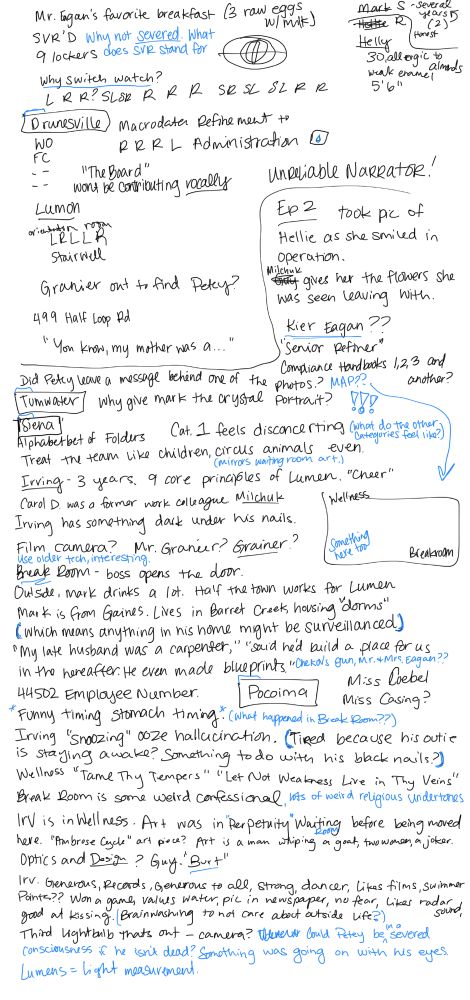 Mr. Eagan's favorite breakfast (3 raw eggs w/milk)
SVR'D Why not severed. What
9 lockers does SVR stand for
Mark S - several years
R (2)
Helly Honest
30, allergic to almonds
weak enamel
5'6"
Why switch watch?
L R R? SLSR R R R SR SL SL R R
Drunesville Macrodata Refinement to
WO R R R L Administration
FC
-- "The Board"
-- wont be contributing vocally
Lumon
orientation room
LRLLR
Stairwell
Granier out to find Petey?
499 Half Loop Rd
"You know, my mother was a..."
Unreliable Narrator!
Ep 2 took pic of
Hellie as she smiled in
operation.
Milchuk gives her the flowers she
was seen leaving with.
Kier Eagan??
"Senior Refiner"
Compliance Handbooks 1,2,3 and
another?
Did Petey leave a message behind one of the photos? MAP??
Tumwater why give mark the crystal Portrait? !!!
Siena
Alphabetbet of Folders Cat. 1 feels disconcerting (What do the other categories feel like?)
Treat the team like children, circus animals even.
(mirrors waiting room art.)
Irving - 3 years. 9 core principles of Lumen. "Cheer"
Carol D. was a former work colleague Milchuk
Irving has something dark under his nails.
Film camera? Mr. Granier? Grainer?
Use older tech, interesting.
Wellness
Something here too
Breakroom
Break Room - boss opens the door.
Outside, mark drinks a lot. Half the town works for Lumen
Mark is from Gaines. Lives in Barret Creek, housing "dorms"
(which means anything in his home might be surveillanced)
"My late husband was a carpenter," "said he'd build a place for us
in the hereafter. He even made blueprints." Chekov's gun, Mr. & Mrs. Eagan??
44502 Employee Number. Pocoima Miss Cobel
Miss Casing?
*Funny timing stomach timing.* (What happened in Break Room??)
Irving "Snoozing" ooze hallucination. (Tired because his outie
is staying awake? Something to do with his black nails?)
Wellness "Tame Thy Tempers" "Let Not Weakness Live in Thy Veins"
Break Room is some weird confessional, lots of weird religious undertones
Irv is in Wellness. Art was in "Perpetuity" Waiting Room before being moved
here. "Ambrose Cycle" art piece? Art is a man whiping a goat, two women, a joker.
Optics and Design? Guy. "Burt"
Irv. Generous, Records, Generous to all, strong, dancer, Likes films, swimmer
Painter?? Won a game, values water, pic in newspaper, no fear, Likes radar sound,
good at kissing. (Brainwashing to not care about outside life?)
Third Lightbulb thats out - camera? Could Petey be in a severed
consciousness if he isn't dead? Something was going on with his eyes.
Lumens = Light measurement.